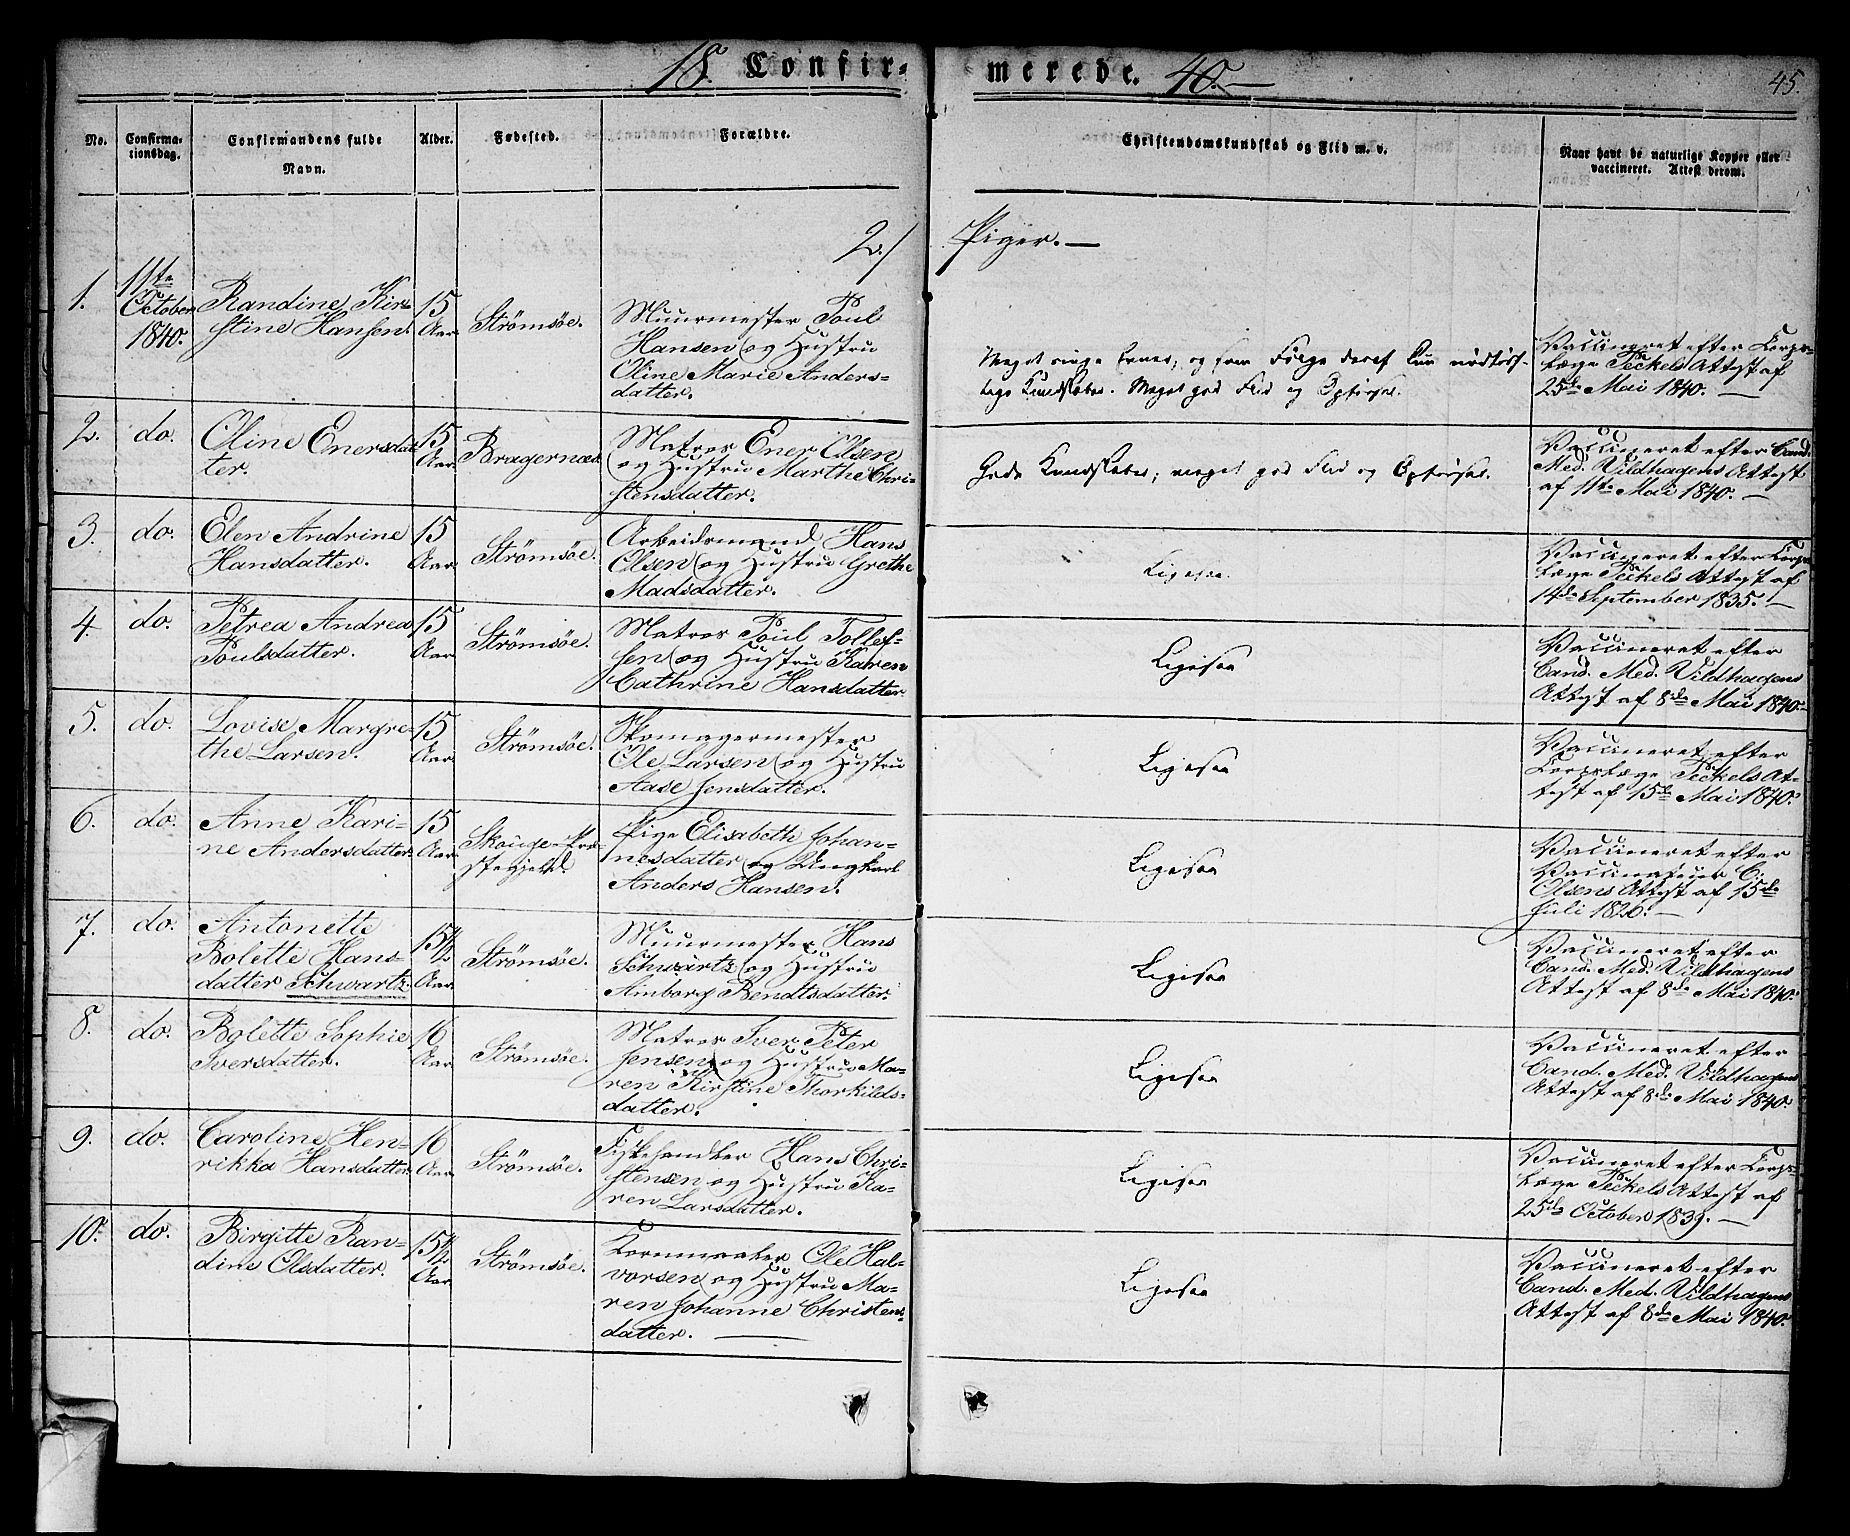 18a Confir-
merede. 40.—
45.
No.
Confirma-
tionsdag.
Confirmandens fulde
Navn.
Alder.
Fødested.
Forældre.
Christendomskundskab og Flid m. v.
Naar havt de naturlige Kopper eller
vaccineret. Attest derom.
2./ Piger.—
1.
11te
October
1840.
Randine Kir-
stine Hansen.
15
Aar.
Strömsöe.
Muurmester Poul
Hansen og Hustru
Oline Marie Anders-
datter.
Meget ringe Evner, og som Følge deraf kun nødtørf-
tige Kundskaber. Meget god Flid og Opførsel.
Vaccineret efter Corps-
læge Peckels Attest af
25de Mai 1840.—
2.
do.
Oline Enersdat-
ter.
15
Aar.
Bragernæs
Matros Ener Olsen
og Hustru Marthe Chri-
stensdatter.
Gode Kundskaber; meget god Flid og Opførsel.
Vaccineret efter Cand.
Med. Vildhagens Attest
af 11te Mai 1840.—
3.
do.
Elen Andrine
Hansdatter.
15
Aar.
Strömsöe.
Arbeidsmand Hans
Olsen og Hustru Grethe
Madsdatter.
Ligesaa.
Vaccineret efter Corps-
læge Peckels Attest af
14de September 1835.—
4.
do.
Petrea Andrea
Poulsdatter.
15
Aar.
Strömsöe.
Matros Poul Tollef-
sen og Hustru Karen
Cathrine Hansdatter
Ligesaa
Vaccineret efter
Cand. Med. Vildhagens
Attest af 8de Mai 1840.—
5.
do.
Lovise Margre-
the Larsen.
15
Aar.
Strömsöe.
Skomagermester
Ole Larsen og Hustru
Aase Jensdatter.
Ligesaa
Vaccineret efter
Corpslæge Peckels At-
test af 15de Mai 1840.
6.
do.
Anne Kari-
ne Andersdatter.
15
Aar.
Skouge-Præ-
stegjeld.
Pige Elisabeth Johan-
nesdatter og Ungkarl
Anders Hansen.
Ligesaa
Vaccineret efter
Vaccinateur C.
Olsens Attest af 15de
Juli 1826.—
7.
do.
Antonette
Bolette Hans-
datter Schwartz.
15 1/2
Aar.
Strömsöe.
Muurmester Hans
Schwartz og Hustru
Ainborg Bendtsdatter.
Ligesaa
Vaccineret efter
Cand. Med. Vildhagens
Attest af 8de Mai 1840.
8.
do.
Bolette Sophie
Iversdatter.
16
Aar.
Strömsöe.
Matros Iver Peter
Jensen og Hustru Ma-
ren Kirstine Thorkilds-
datter.
Ligesaa
Vaccineret efter
Cand. Med. Vildhagens
Attest af 8de Mai 1840.
9.
do.
Caroline Hen-
rikka Hansdatter
16
Aar.
Strömsöe.
Fiskehandler Hans Chri-
stensen og Hustru Ka-
ren Larsdatter.
Ligesaa
Vaccineret efter Corps-
læge Peckels Attest af
25de October 1839.—
10.
do.
Birgitte Ran-
dine Olsdatter.
15 1/2
Aar.
Strömsöe.
Kornmaaler Ole Hal-
vorsen og Hustru Ma-
ren Johanne Christens-
datter.—
Ligesaa
Vaccineret efter
Cand. Med. Vildhagens
Attest af 8de Mai 1840.